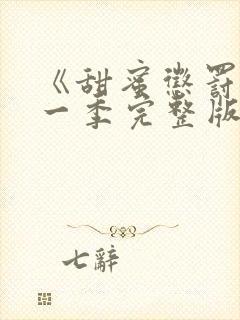 《甜蜜懲罰
一季完整版
七辭